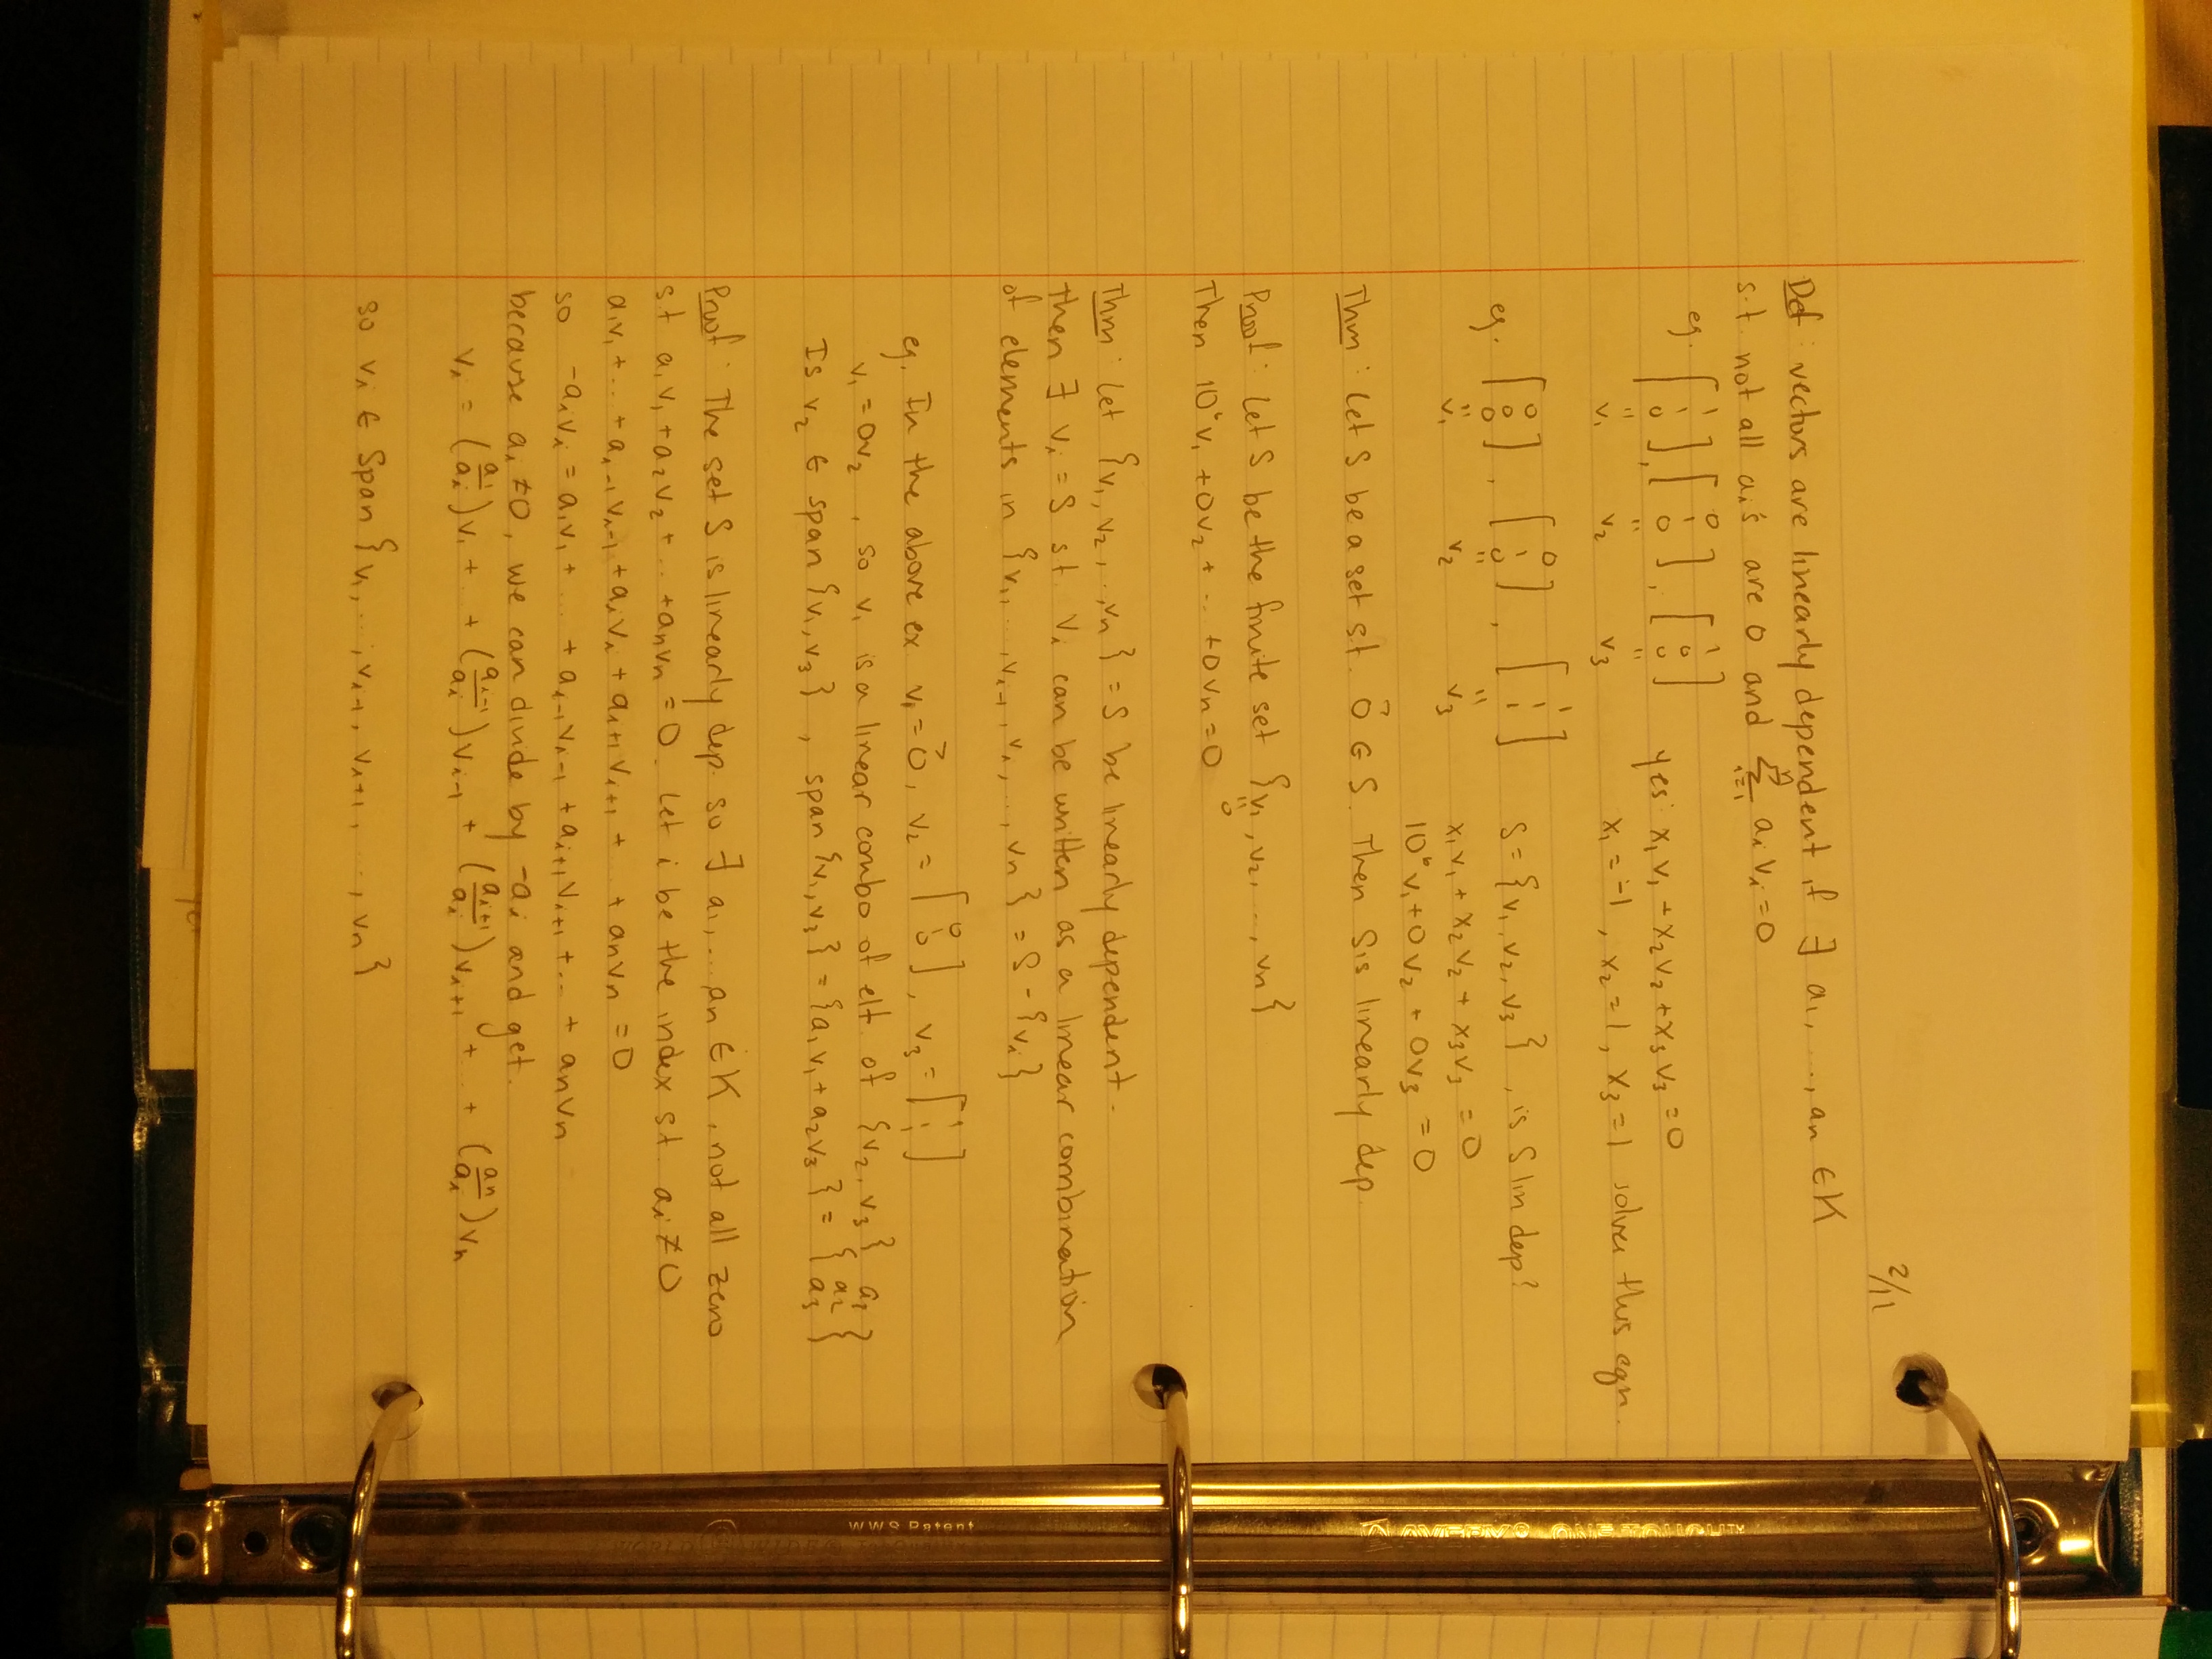 2/11
Def: vectors are linearly dependent if ∃ a₁, ..., an ∈ K
s.t. not all aᵢ's are 0 and ⁿΣᵢ₌₁ aᵢvᵢ = 0
eg. [1 1 0], [0 1 0], [1 0 0] yes: x₁v₁ + x₂v₂ + x₃v₃ = 0
v₁ v₂ v₃ x₁ = -1, x₂ = 1, x₃ = 1 solves this eqn.
eg. [0 0 0], [0 1 0], [1 1 1] S = {v₁, v₂, v₃}, is S lin dep?
v₁ v₂ v₃ x₁v₁ + x₂v₂ + x₃v₃ = 0
10⁶v₁ + 0v₂ + 0v₃ = 0
Thm: Let S be a set st. 0⃗ ∈ S. Then S is linearly dep.
Proof: Let S be the finite set {v₁, v₂, ..., vn}
Then 10⁶v₁ + 0v₂ + ... + 0vn = 0
Thm: Let {v₁, v₂, .., vn} = S be linearly dependent.
then ∃ vᵢ = S st. vᵢ can be written as a linear combination
of elements in {v₁, ..., vᵢ₋₁, vᵢ, ..., vn} = S - {vᵢ}
eg. In the above ex v₁ = 0⃗, v₂ = [0 1 0], v₃ = [1 1 1]
v₁ = 0v₂, so v₁ is a linear combo of elt. of {v₂, v₃}
Is v₂ ∈ span {v₁, v₃}, span {v₁, v₃} = {a₁v₁ + a₂v₃} = {a₃ a₂ a₃}
Proof: The set S is linearly dep. so ∃ a₁, ... an ∈ K, not all zero
st a₁v₁ + a₂v₂ + ... + anvn = 0. Let i be the index st aᵢ ≠ 0
a₁v₁ + ... + aᵢ₋₁vᵢ₋₁ + aᵢvᵢ + aᵢ₊₁vᵢ₊₁ + ... + anvn = 0
so -aᵢvᵢ = a₁v₁ + ... + aᵢ₋₁vᵢ₋₁ + aᵢ₊₁vᵢ₊₁ + ... + anvn
because aᵢ ≠ 0, we can divide by -aᵢ and get.
vᵢ = (a₁/aᵢ)v₁ + ... + (aᵢ₋₁/aᵢ)vᵢ₋₁ + (aᵢ₊₁/aᵢ)vᵢ₊₁ + ... + (an/aᵢ)vn
so vᵢ ∈ Span {v₁, ..., vᵢ₋₁, vᵢ₊₁, ..., vn}
AVERY® ONE TOUCH™
WWS Patent